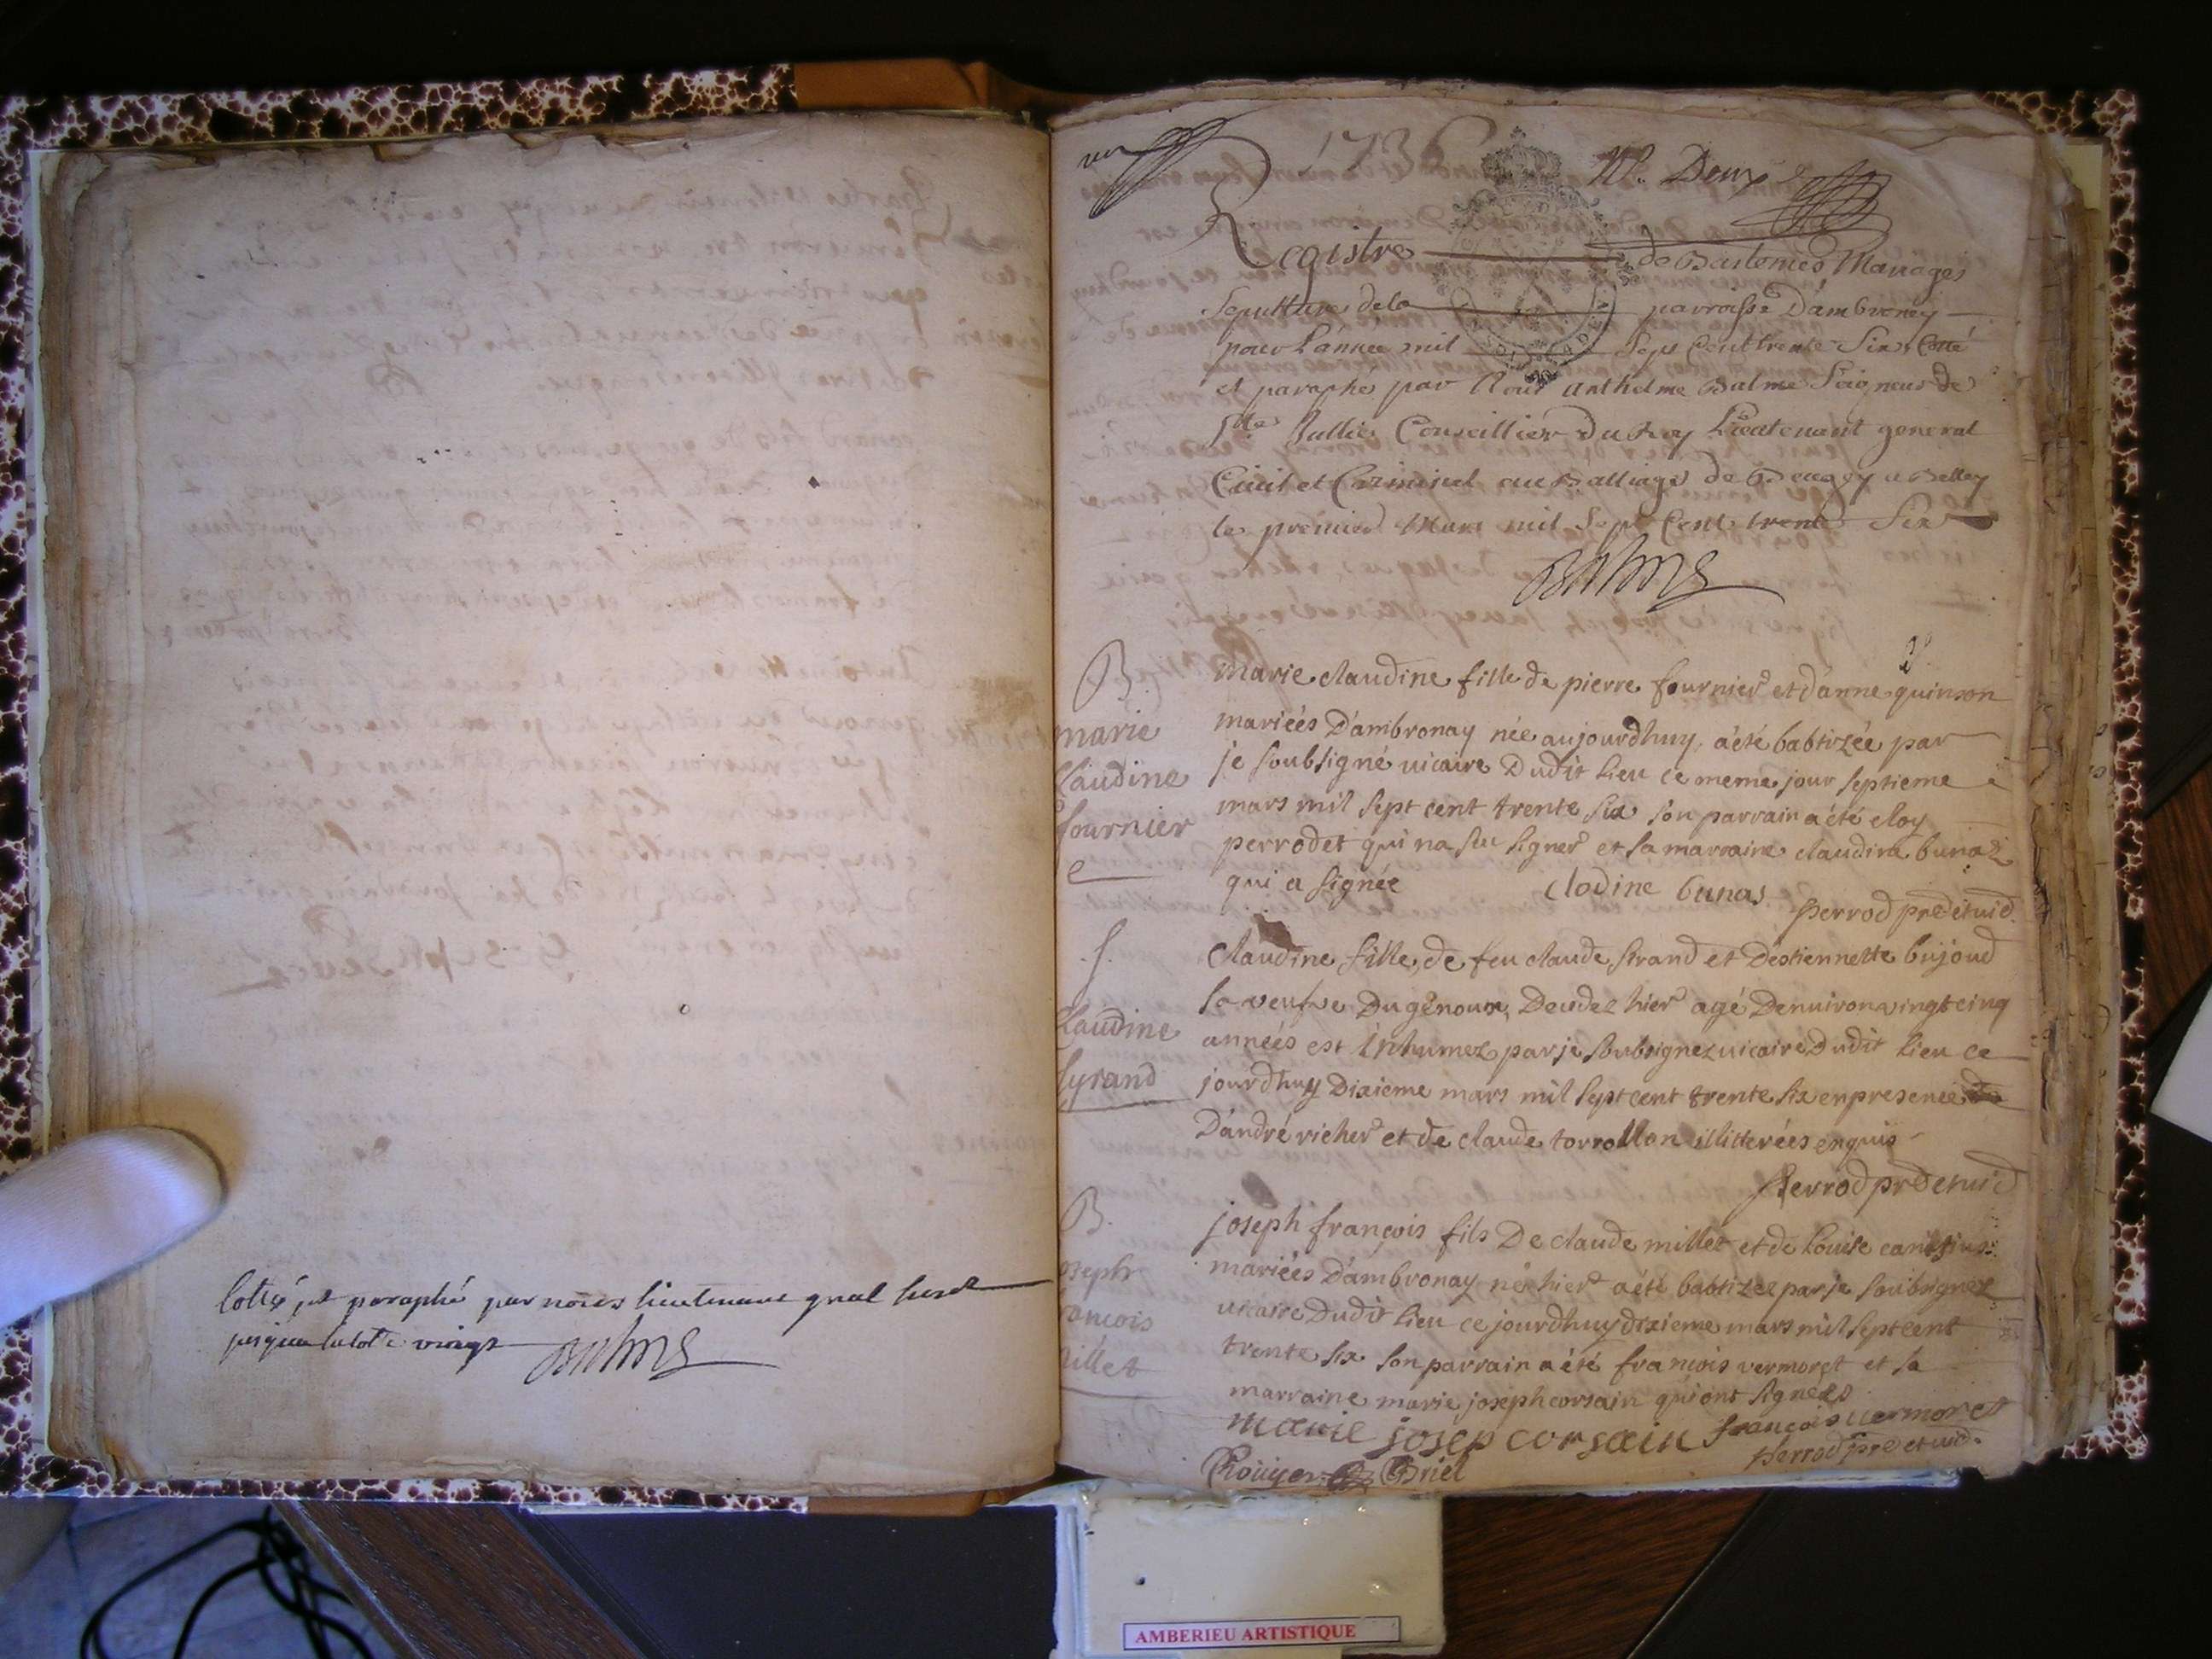 Cotté et paraphé par nous lieutenant gnal
jusqua vingt
1736
Deux
Registre de Batemes Mariages
Sepultures de la parroisse D'ambroney
pour L'année mil Sept Cent trente Six Cotté
et paraphé par Nous anthelme Balme Seigneur de
Ste Jullie Conseillier Du Roy Lieutenant general
Civil et Criminel au Balliage de Beugey a Belley
le premier Mars mil Sept Cent trente Six
Balme
B.
marie
Claudine
fournier
marie claudine fille de pierre fournier et d'anne quinson
mariéés D'ambronay née aujourdhuy, a été babtizée par
je soubsigné vicaire Dudit lieu ce meme jour septieme
mars mil sept cent trente six son parrain a été eloy
perrodet qui na sceu signer et sa marraine claudine
qui a signée clodine bunas
perrod pre et vic
S.
Claudine
Syrand
Claudine fille de feu claude sirand et D'estiennette bujoud
sa veufve Du genoux, Decedez hier agé Denviron vingt cinq
annéés est inhumez par je soubsignez vicaire Dudit lieu ce
jourdhuy Dixieme mars mil sept cent trente six en presence
D'andré richer et de claude torrollon illitteréés enquis
perrod pre et vic
B.
oseph
rancois
millet
joseph françois fils De claude millet et de Louise
mariéés D'ambronay né hier a été babtizee par je soubsignez
vicaire Dudit lieu ce jourdhuy dixieme mars mil sept cent
trente six son parrain a été francois vermoret et sa
marraine marie joseph corsain qui ont signéés
marie josep corsain françois vermoret
perrod pre et vic.
AMBERIEU ARTISTIQUE